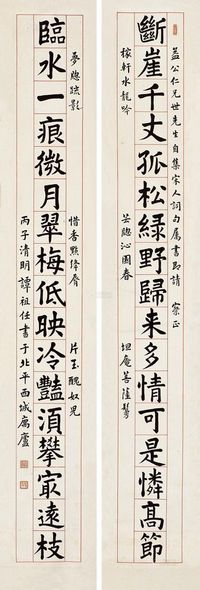 益公仁兄世先生自集宋人詞句属書即請 詧正
斷崖千丈孤松綠野歸来多情可是憐高節
稼軒水龍吟 芸牕沁園春 坦庵菩薩鬘
夢牕疏影 惜香點絳脣 片玉醜奴兒
臨水一痕微月翠梅低映冷豔須攀㝡遠枝
丙子清明譚祖任書于北平西城寓廬